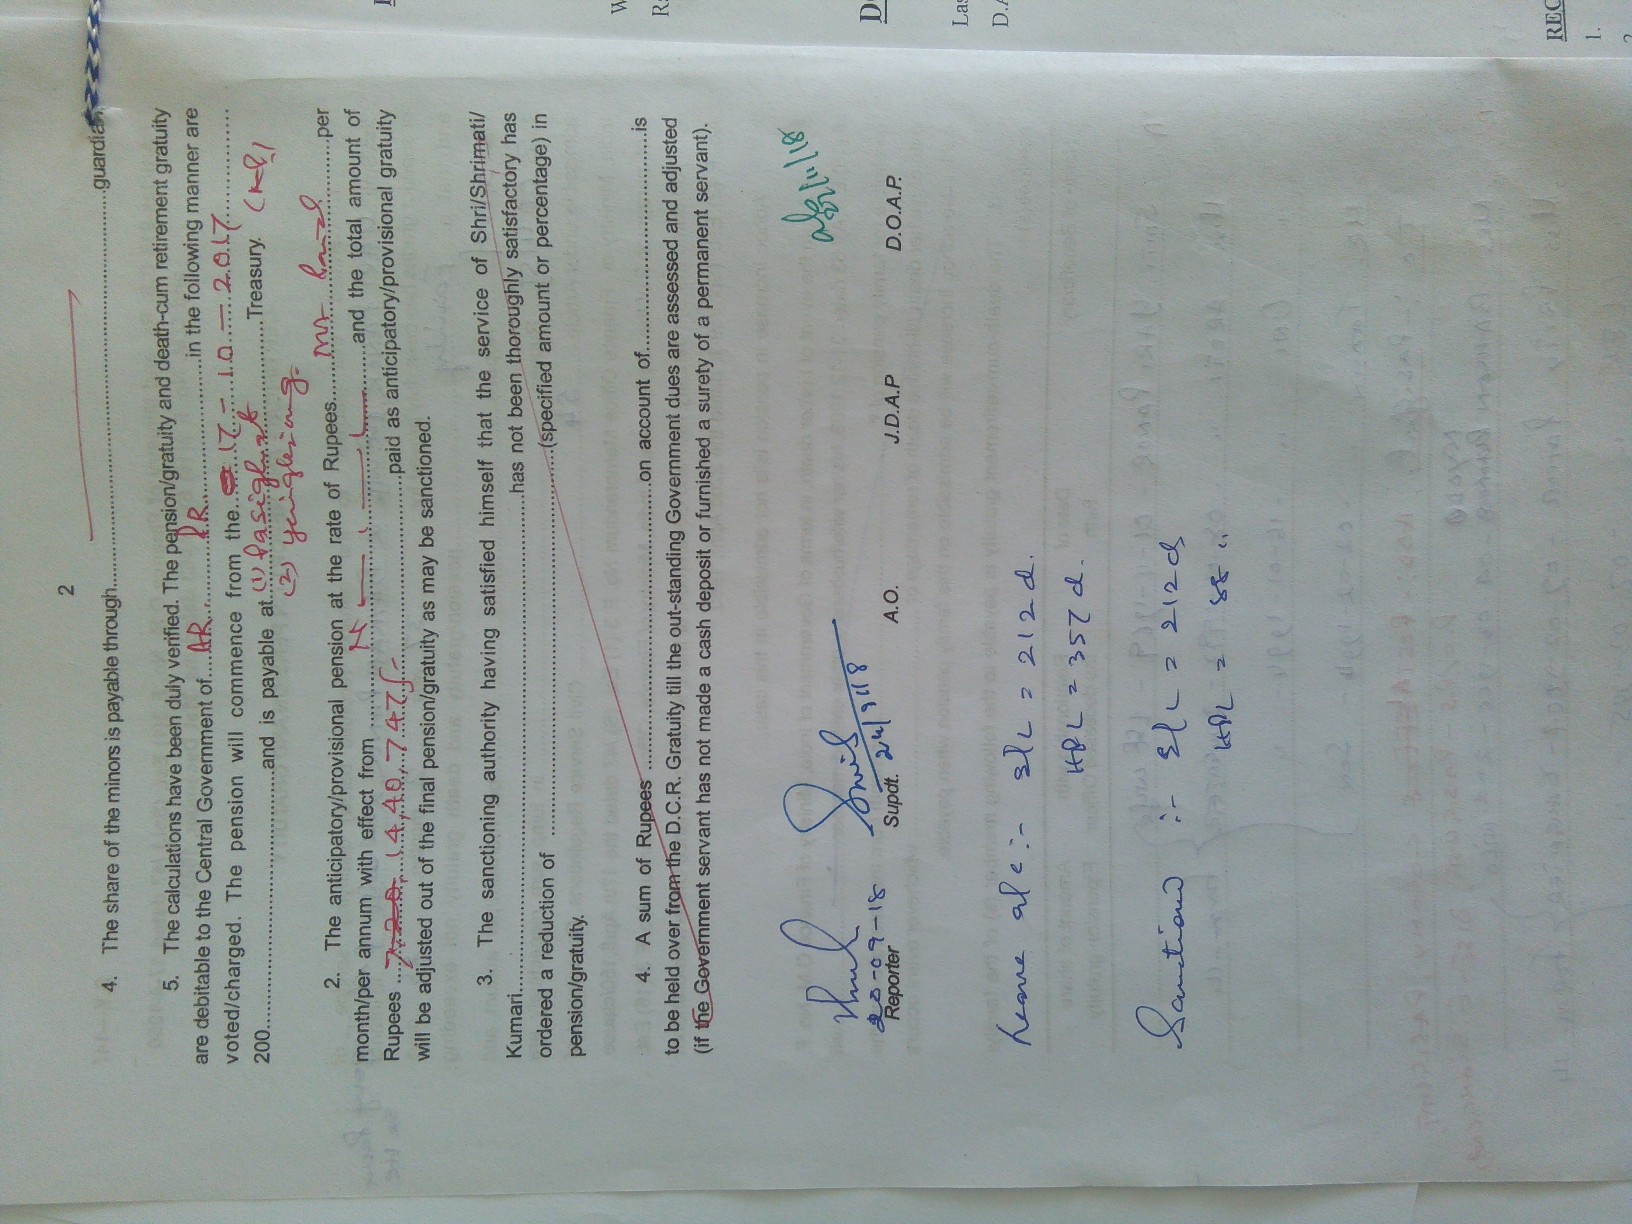 2
4. The share of the minors is payable through..............guardian
5. The calculations have been duly verified. The pension/gratuity and death-cum retirement gratuity
are debitable to the Central Government of....AR.............in the following manner are
voted/charged. The pension will commence from the....17-10-2017..............
200..............and is payable at..(1) Pasighat..............Treasury.
(2) Yingkiong.
2. The anticipatory/provisional pension at the rate of Rupees..............per
month/per annum with effect from ..............and the total amount of
Rupees ..............paid as anticipatory/provisional gratuity
will be adjusted out of the final pension/gratuity as may be sanctioned.
3. The sanctioning authority having satisfied himself that the service of Shri/Shrimati/
Kumari..............has not been thoroughly satisfactory has
ordered a reduction of ..............(specified amount or percentage) in
pension/gratuity.
4. A sum of Rupees ..............on account of..............is
to be held over from the D.C.R. Gratuity till the out-standing Government dues are assessed and adjusted
(if the Government servant has not made a cash deposit or furnished a surety of a permanent servant).
20-09-18 24/9/18
Reporter Supdt. A.O. J.D.A.P D.O.A.P.
Leave a/c :- E/L = 212 d.
HPL = 357 d.
Sanctioned :- E/L = 212 d
HPL = 88 "
D.A
REC
1.